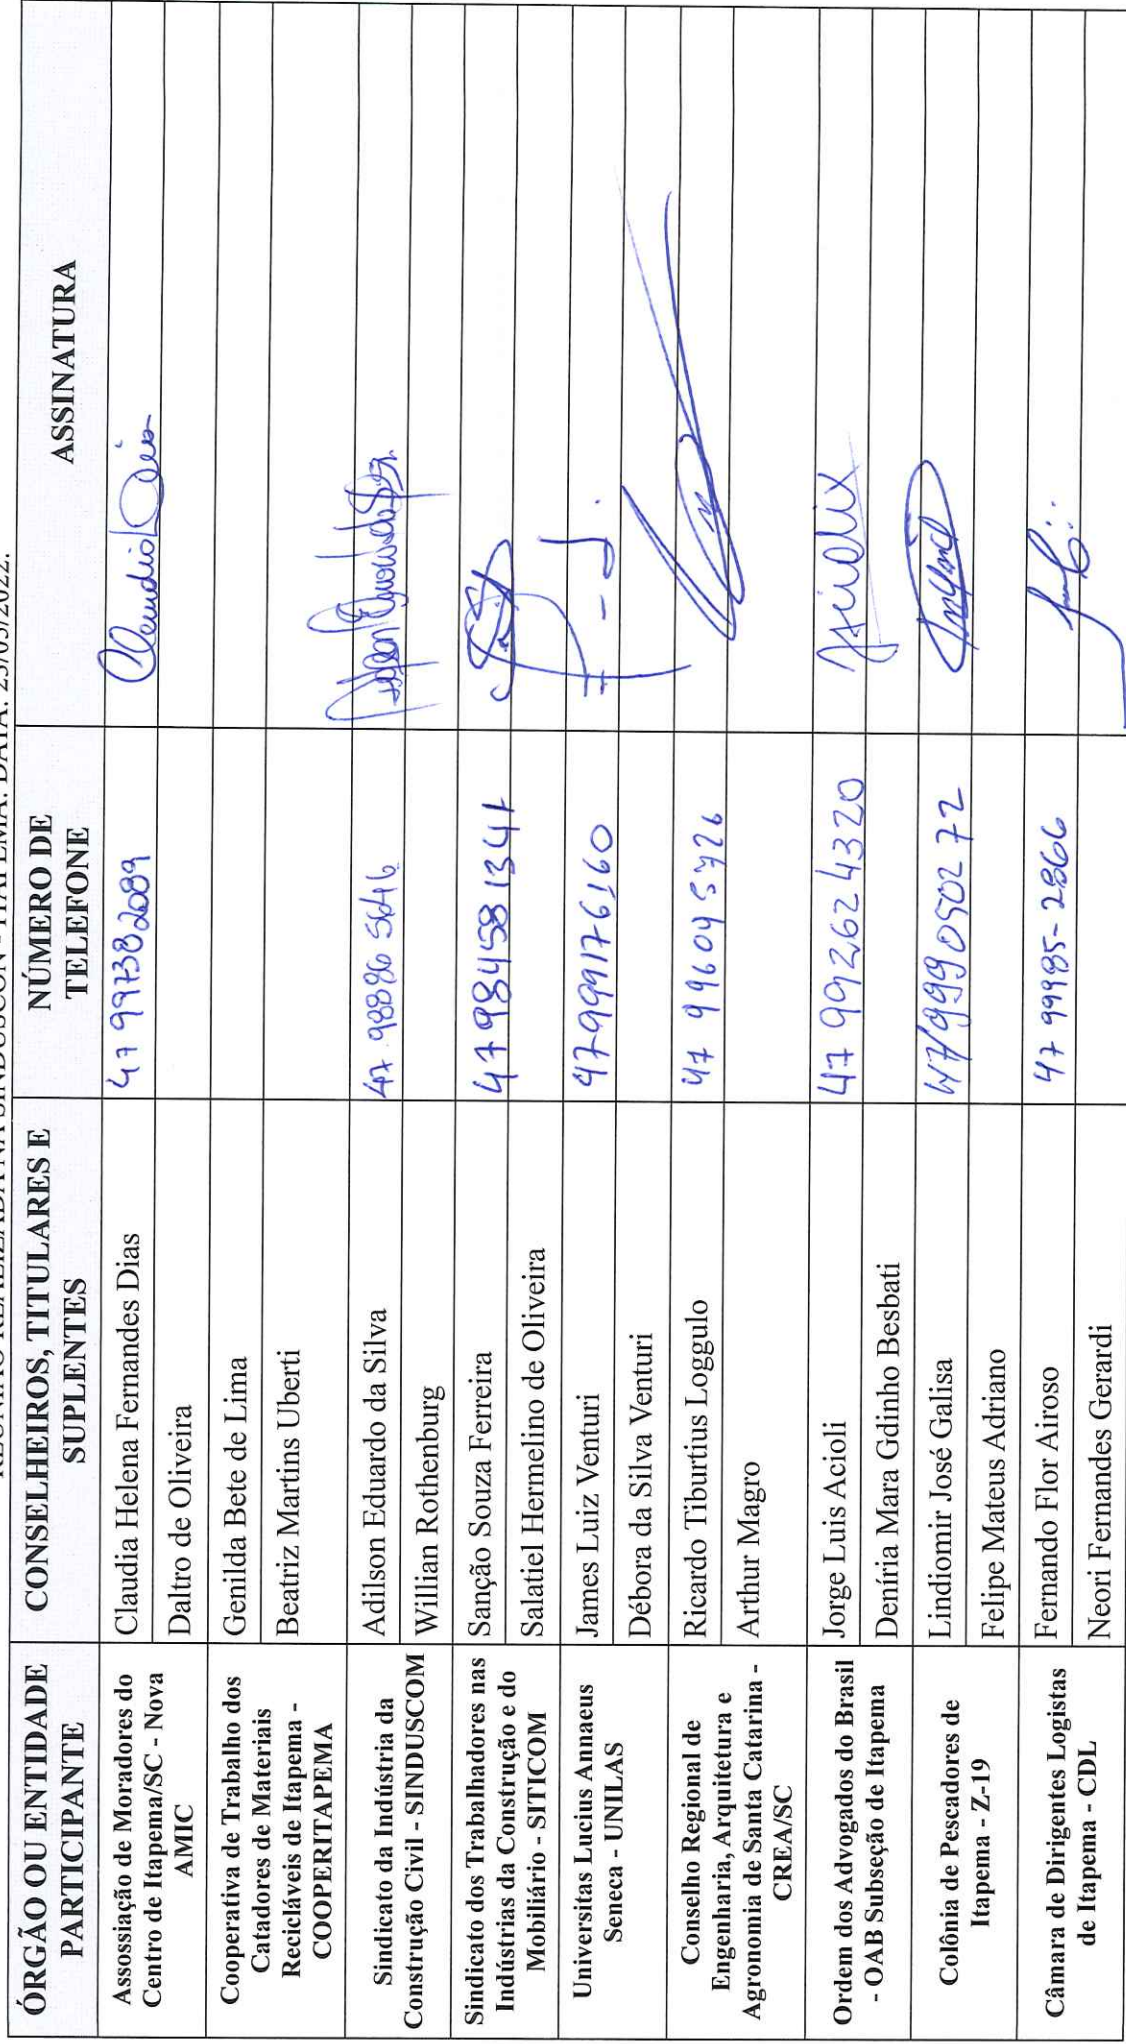 REUNIÃO REALIZADA NA SINDUSCON - ITAPEMA. DATA: 25/05/2022.
ÓRGÃO OU ENTIDADE PARTICIPANTE
CONSELHEIROS, TITULARES E SUPLENTES
NÚMERO DE TELEFONE
ASSINATURA
Assossiação de Moradores do
Centro de Itapema/SC - Nova
AMIC
Claudia Helena Fernandes Dias
47 997382089
Daltro de Oliveira
Cooperativa de Trabalho dos
Catadores de Materiais
Recicláveis de Itapema -
COOPERITAPEMA
Genilda Bete de Lima
Beatriz Martins Uberti
Sindicato da Indústria da
Construção Civil - SINDUSCOM
Adilson Eduardo da Silva
47 98896 5646
Willian Rothenburg
Sindicato dos Trabalhadores nas
Indústrias da Construção e do
Mobiliário - SITICOM
Sanção Souza Ferreira
47 984581341
Salatiel Hermelino de Oliveira
Universitas Lucius Annaeus
Seneca - UNILAS
James Luiz Venturi
47999176160
Débora da Silva Venturi
Conselho Regional de
Engenharia, Arquitetura e
Agronomia de Santa Catarina -
CREA/SC
Ricardo Tiburtius Loggulo
47 99604 5726
Arthur Magro
Ordem dos Advogados do Brasil
- OAB Subseção de Itapema
Jorge Luis Acioli
47 992624320
Deníria Mara Gdinho Besbati
Colônia de Pescadores de
Itapema - Z-19
Lindiomir José Galisa
47/999050272
Felipe Mateus Adriano
Câmara de Dirigentes Logistas
de Itapema - CDL
Fernando Flor Airoso
47 99985-2866
Neori Fernandes Gerardi